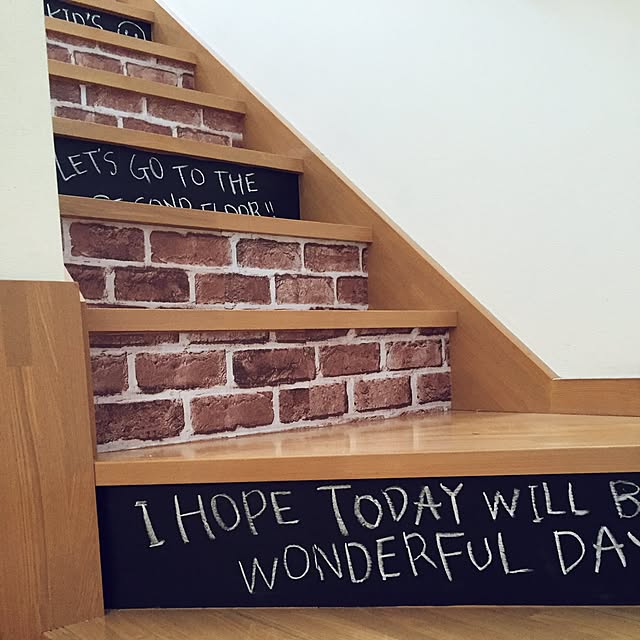 KID'S
LET'S GO TO THE
SECOND FLOOR!!
I HOPE TODAY WILL B
WONDERFUL DAY